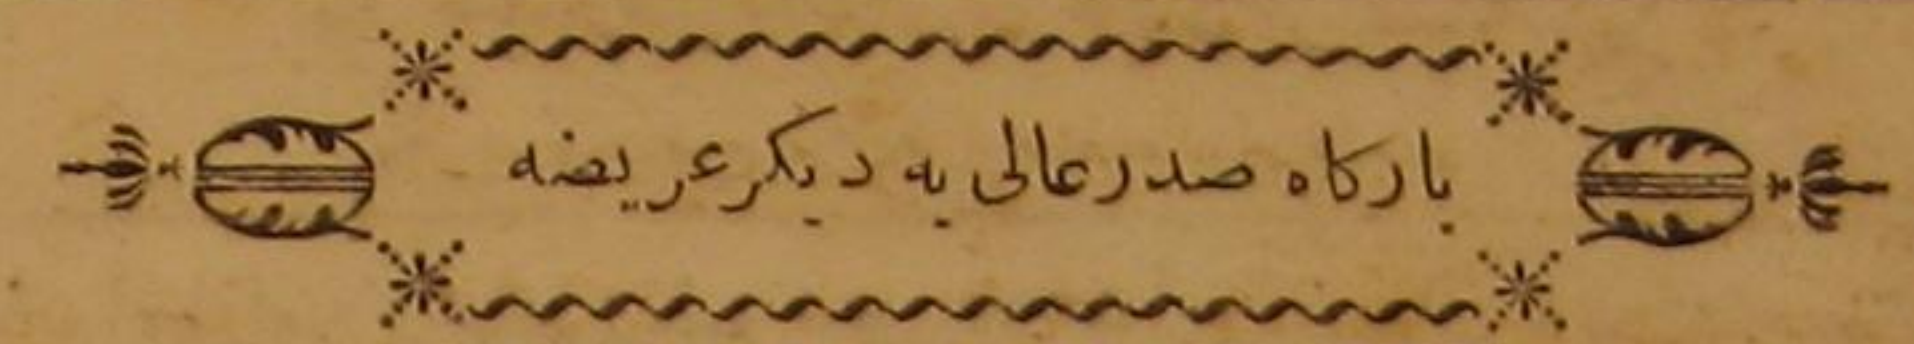 بارکاه صدر عالی یه دیکر عریضه